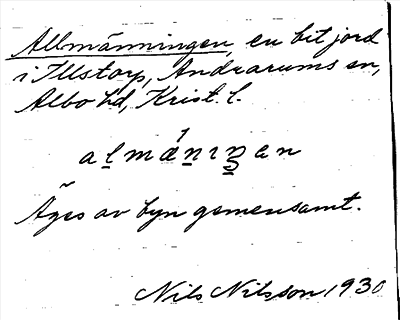 Allmänningen, en bit jord
i Illstorp, Andrarums sn,
Albo hd, Krist. l.
almǽnıŋan
Äges av byn gemensamt.
Nils Nilsson 1930